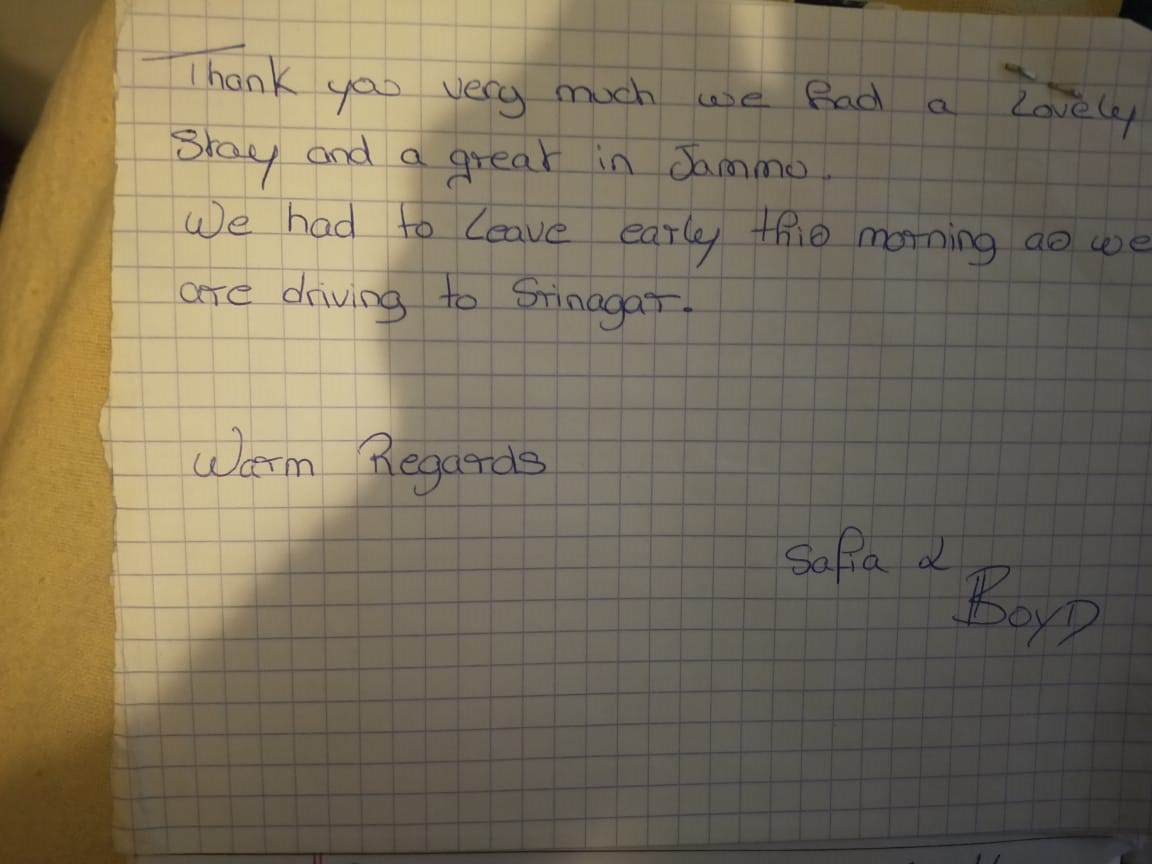 Thank you very much we had a Lovely
Stay and a great in Jammu.
We had to Leave early this morning as we
are driving to Srinagar.
Warm Regards
Safia &
Boyd